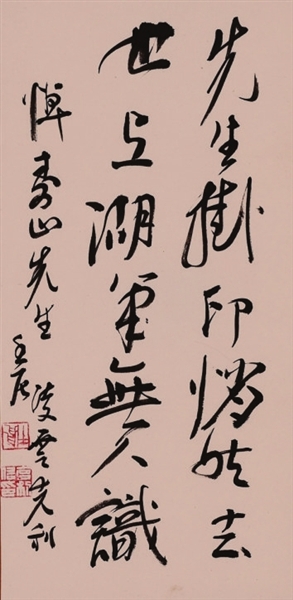 先生掛印悄然去
世上湖筆無人識
悼壽山先生
壬辰 凌雲克利